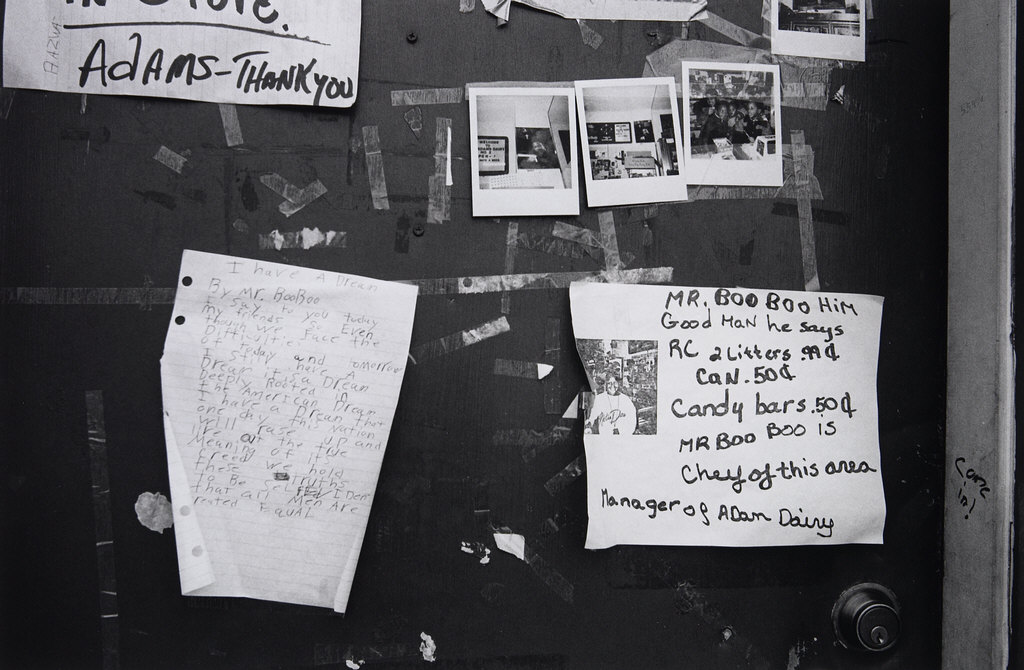 IN STORE.
ADAMS-THANK YOU
I have A Dream
By MR. BooBoo
I say to you today
my friends so Even
though we face the
Difficultie
of today and tomorrow
I still have A
Dream it is a Dream
Deeply Rooted in
the American Dream
I have a Dream that
one day this Nation
will rase up and
live out the true
Meaning of it
creed we hold
these truths
to Be self EVIDen
that all Men Are
reated EQUAL
MR. BOO BOO HiM
Good MaN he says
RC 2 Litters .99¢
CaN .50¢
Candy bars .50¢
MR BOO BOO is
Chey of this area
Manager of ADam Dairy
Come
in!